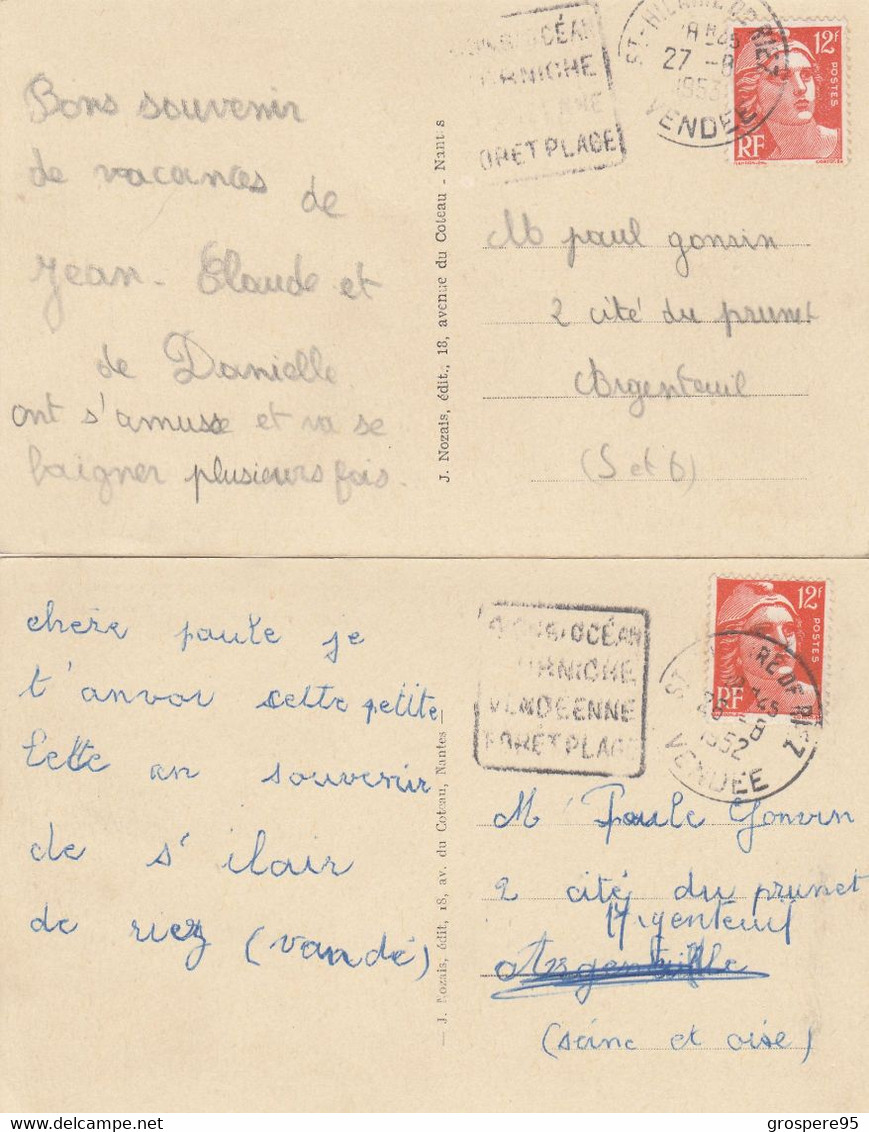 Bons souvenir
de vacances de
Jean-Claude et
de Danielle
ont s'amuse et va se
baigner plusieurs fois.
J. Nozais, édit., 18, avenue du Coteau - Nantes
OCÉAN
RNICHE
ENNE
ORET PLAGE
ST-HILAIRE DE RIEZ
18 H45
27 -8
1953
VENDEE
12F
POSTES
RF
M paul gonsin
2 cité du prunet
Argenteuil
(S et O)
chere paule je
t'anvoi cette petite
Cette an souvenir
de s' ilair
de riez (vandé)
— J. Nozais, édit, 18, av. du Coteau, Nantes —
OCÉAN
RNICHE
VENDEENNE
FORET PLAGE
ST RE DE RIEZ
-8
1952
VENDÉE
12F
POSTES
RF
M Paule Gonsin
2 cité du prunet
Argenteuil
(seine et oise)
grospere95